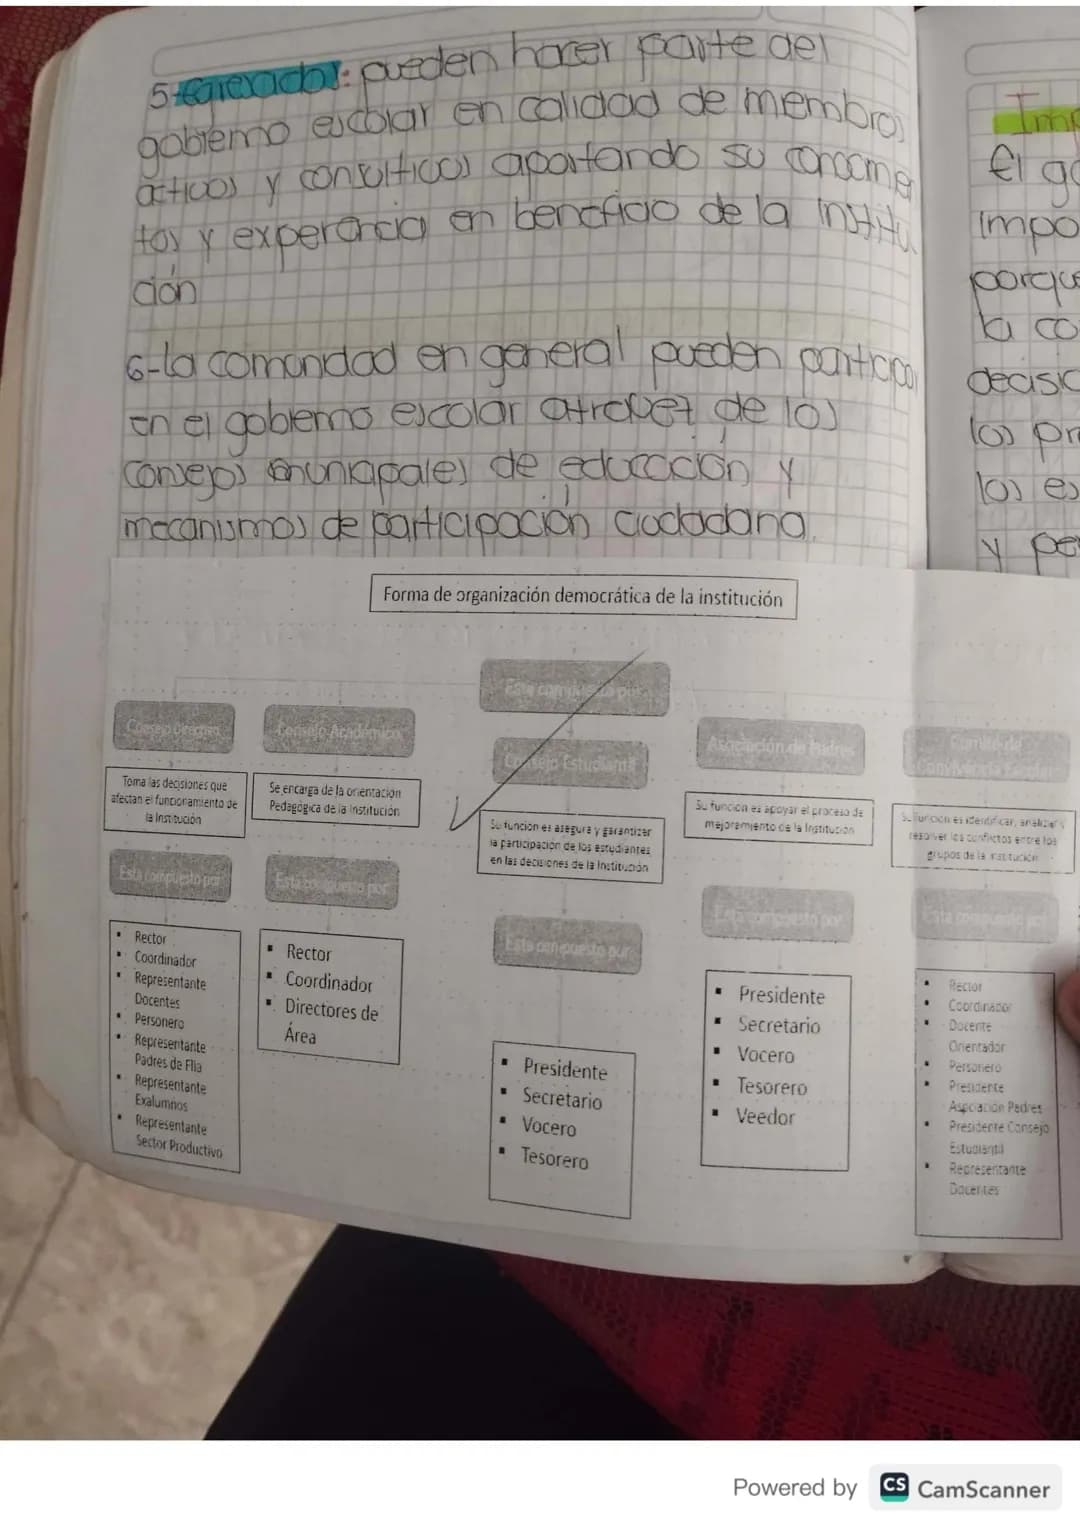 5-egresados: pueden hacer parte del
gobierno escolar en calidad de membros
activos y consultivos aportando su conocime
tos y experencia en beneficio de la institu
ción
6-la comunidad en general pueden participar
en el gobierno escolar atravez de los
consejos municipales de educación y
mecanismos de participación ciudadana.
Imp
El go
impo
porque
la co
decisio
los pr
los es
y pe
Forma de organización democrática de la institución
Esta compuesta por
Consejo Directivo
Toma las decisiones que
afectan el funcionamiento de
la Institución
Está compuesto por
Rector
Coordinador
Representante
Docentes
Personero
Representante
Padres de Flia
Representante
Exalumnos
Representante
Sector Productivo
Consejo Académico
Se encarga de la orientación
Pedagógica de la Institución
Está compuesto por
Rector
Coordinador
Directores de
Área
Consejo Estudiantil
Su función es asegura y garantizar
la participación de los estudiantes
en las decisiones de la Institución
Está compuesto por
Presidente
Secretario
Vocero
Tesorero
Asociación de Padres
Su función es apoyar el proceso de
mejoramiento de la Institución
Está compuesto por
Presidente
Secretario
Vocero
Tesorero
Veedor
Comité de
Convivencia Escolar
Su función es identificar, analizar y
resolver los conflictos entre los
grupos de la institución
Está compuesto por
Rector
Coordinador
Docente
Orientador
Personero
Presidente
Asociación Padres
Presidente Consejo
Estudiantil
Representante
Docentes
Powered by CS CamScanner